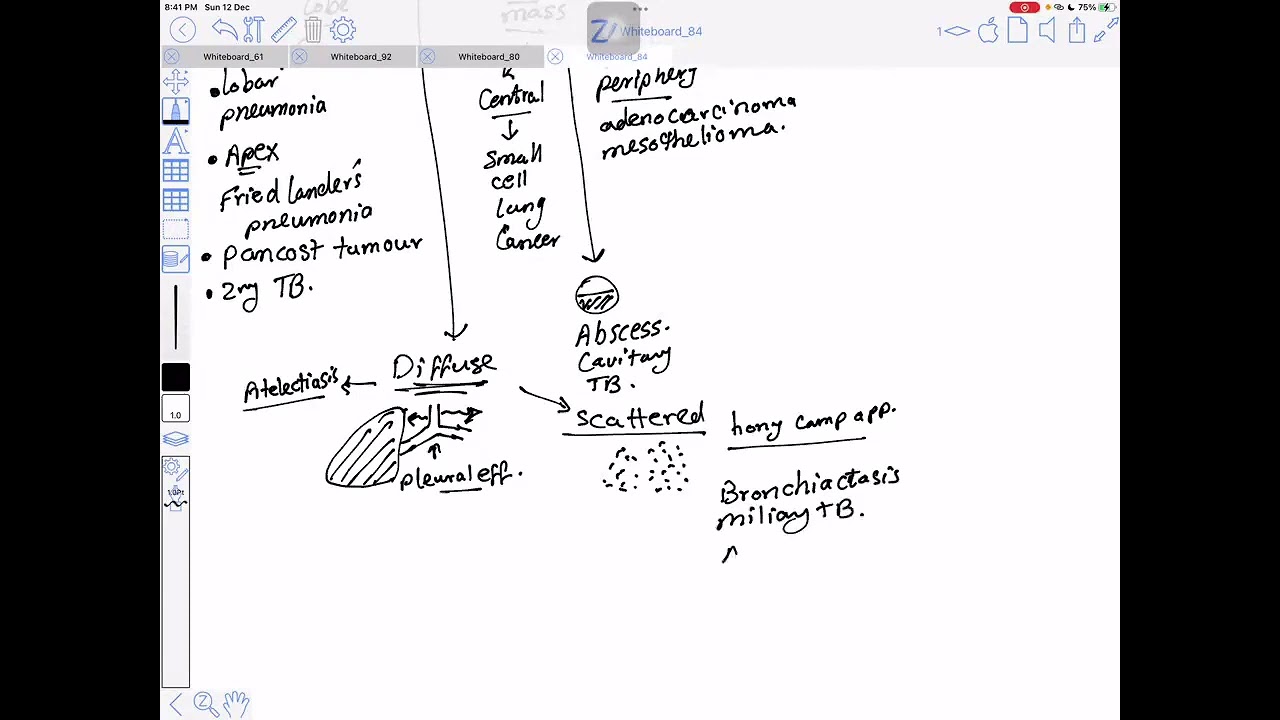 8:41 PM Sun 12 Dec
75%
lobe
mass
Whiteboard_84
1
Whiteboard_61
Whiteboard_92
Whiteboard_80
Whiteboard_84
lobar
pneumonia
Apex
Friedlander's
pneumonia
Pancost tumour
2ry TB.
Central
Small
cell
lung
Cancer
periphery
adenocarcinoma
mesothelioma.
Abscess.
Cavitary
TB.
Diffuse
Atelectiasis
pleural eff.
Scattered
hony camp app.
Bronchiactasis
miliay TB.
1.0
1.0Pt